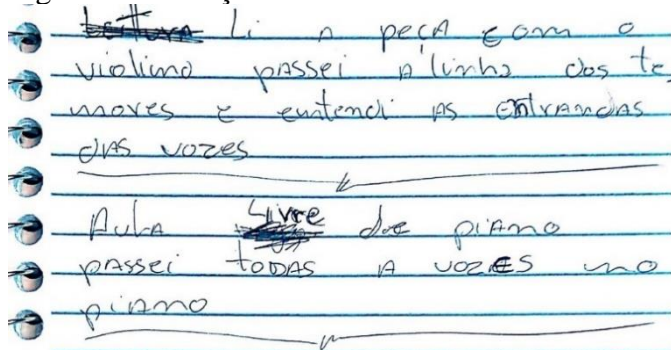 Li a peça com o
violino passei a linha dos te
nores e entendi as entrandas
das vozes
Aula Livre doe piano
passei todas a vozes no
piano